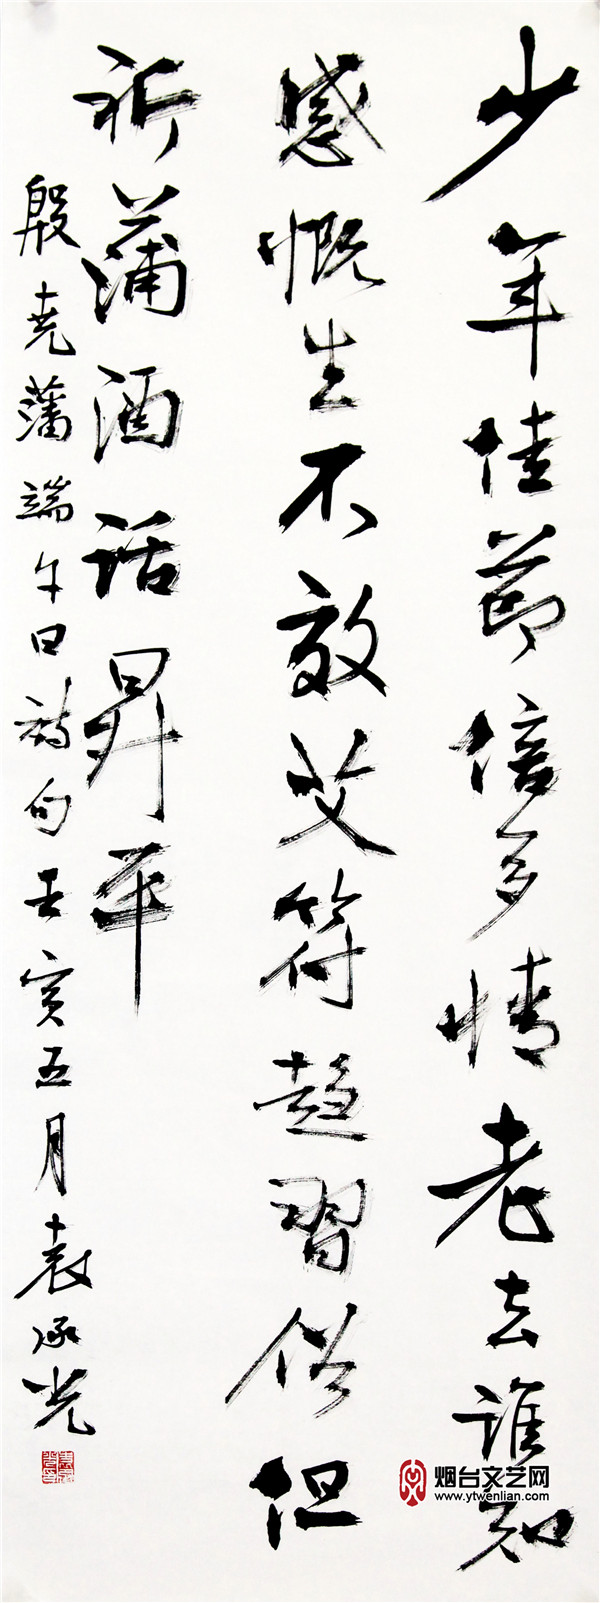 少年佳節倍多情老去誰知
感慨生不效艾符趨習俗但
祈蒲酒话昇平
殷尭藩端午日詩句壬寅五月袁承光
烟台文艺网
www.ytwenlian.com